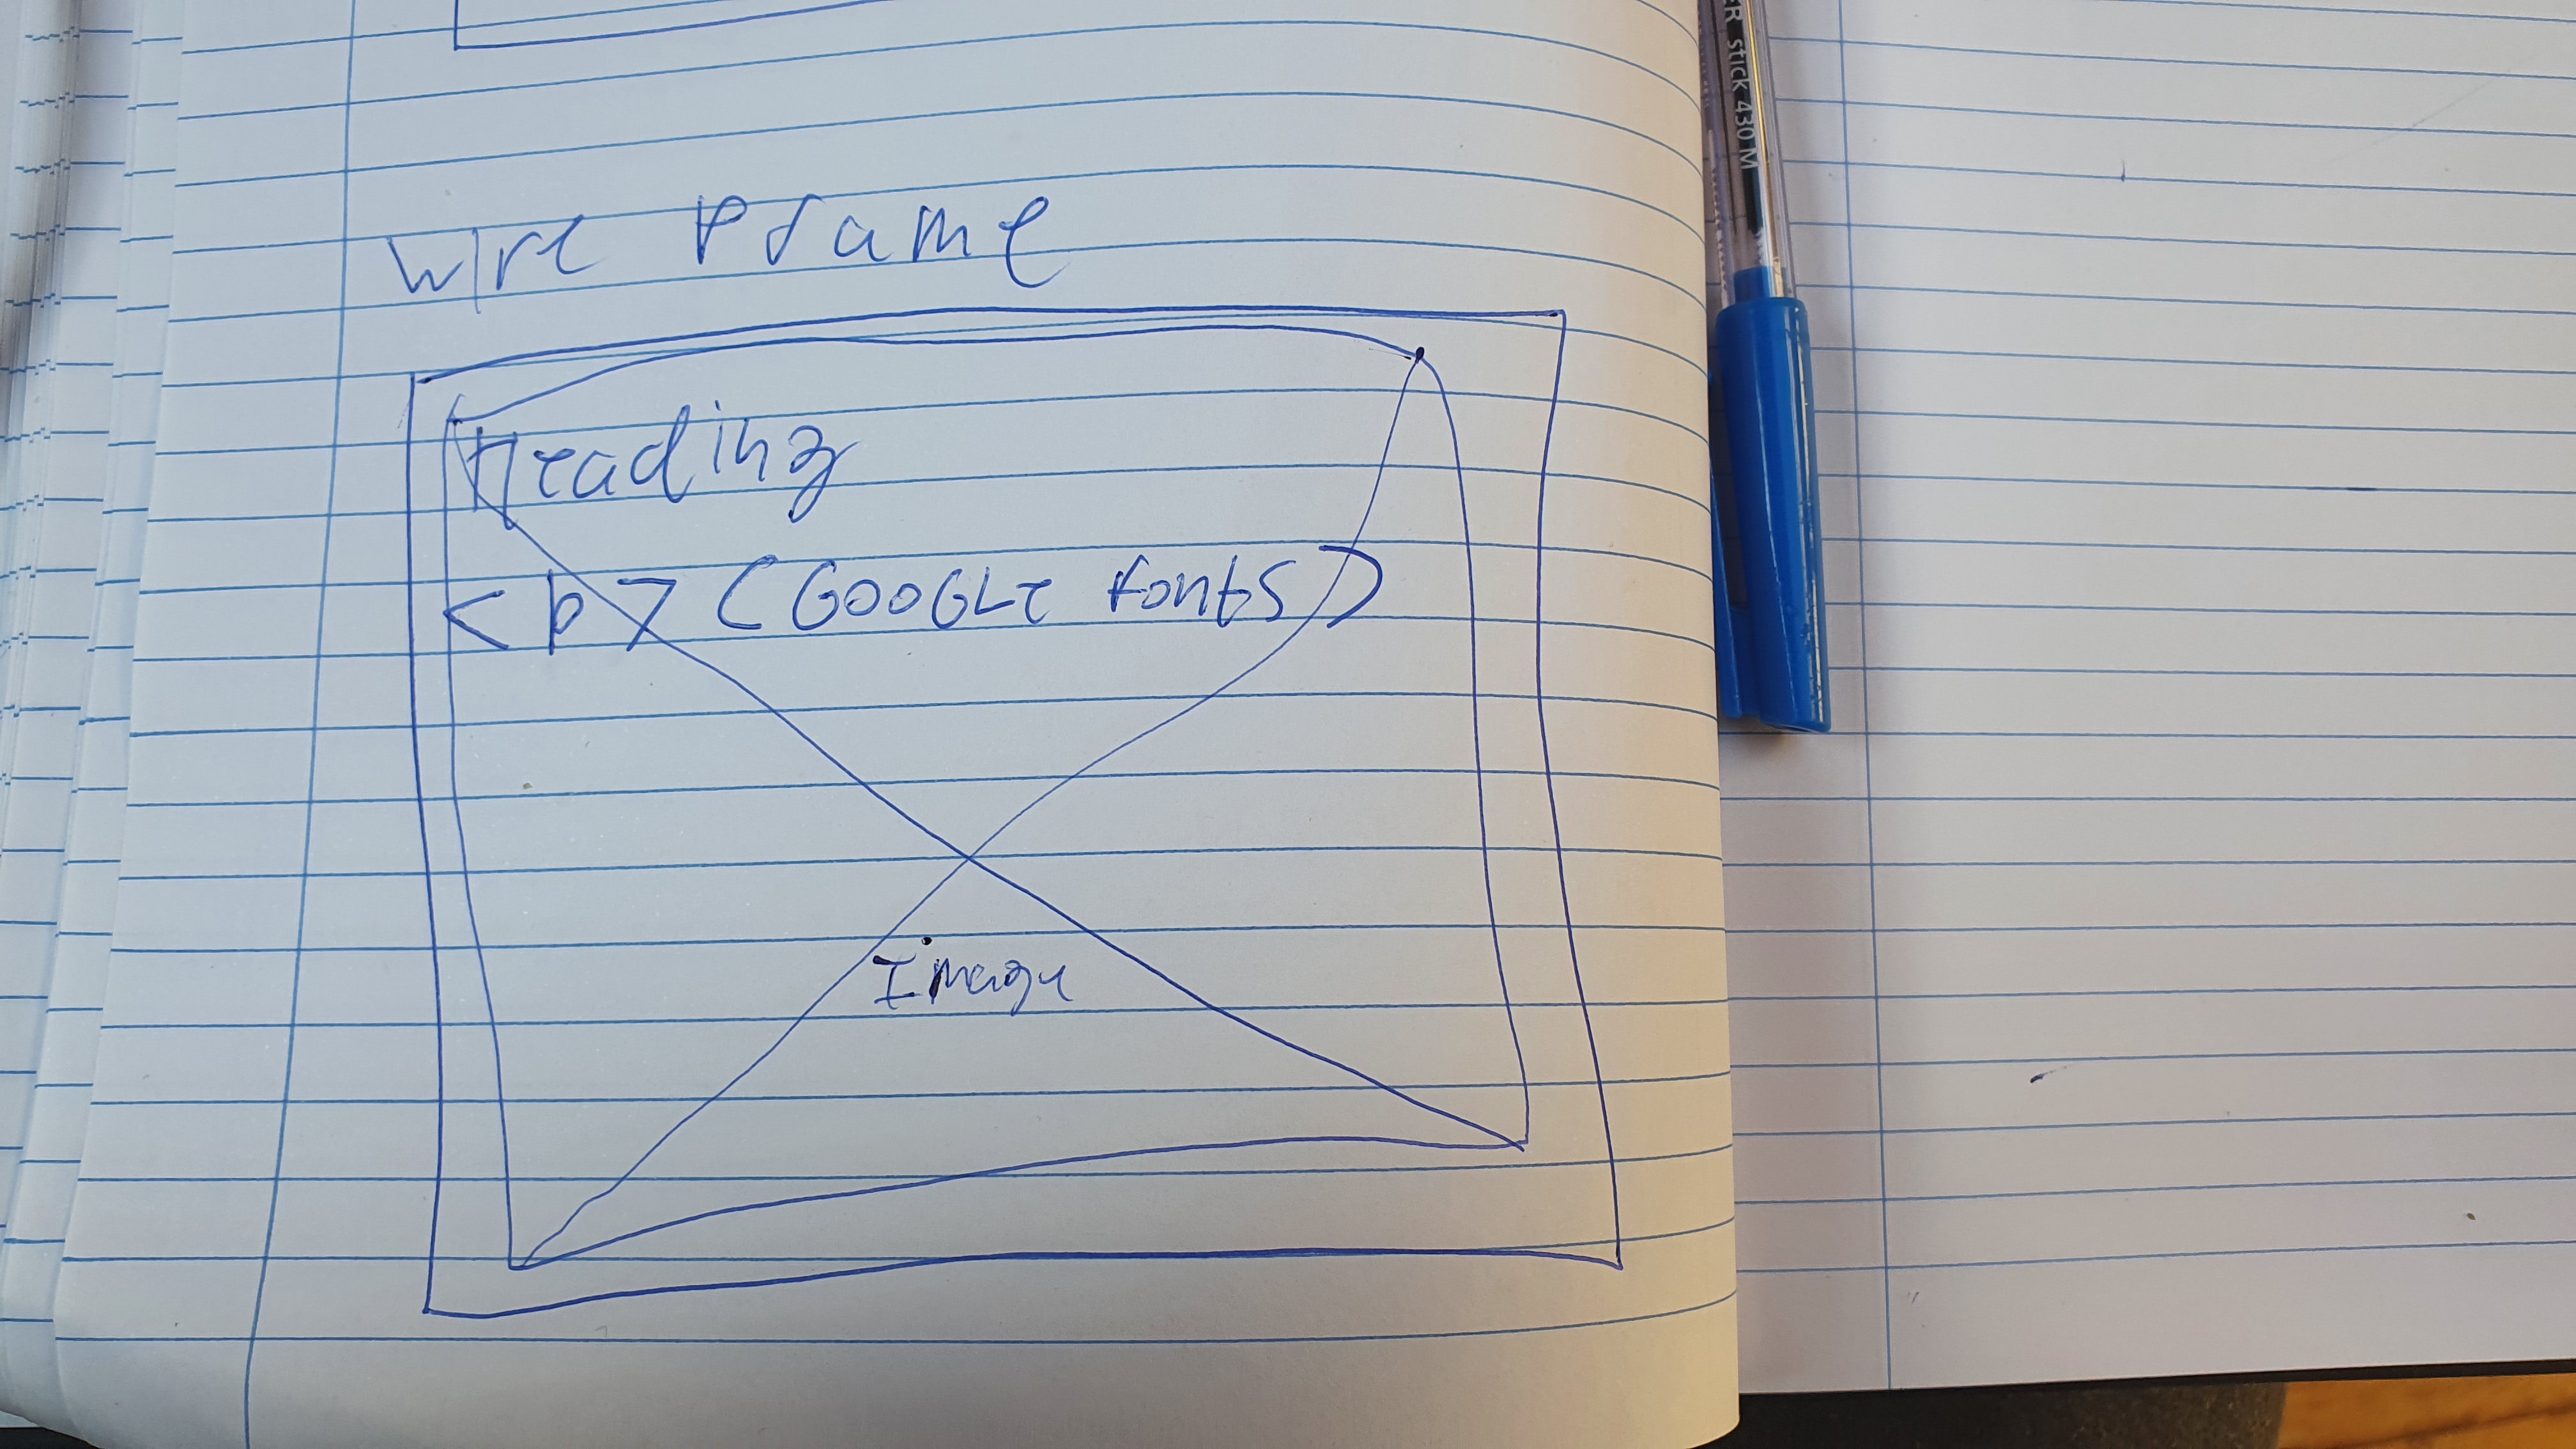 Wire Frame
Heading
<p> (GOOGLe fonts)
Image
ER stick 430 M